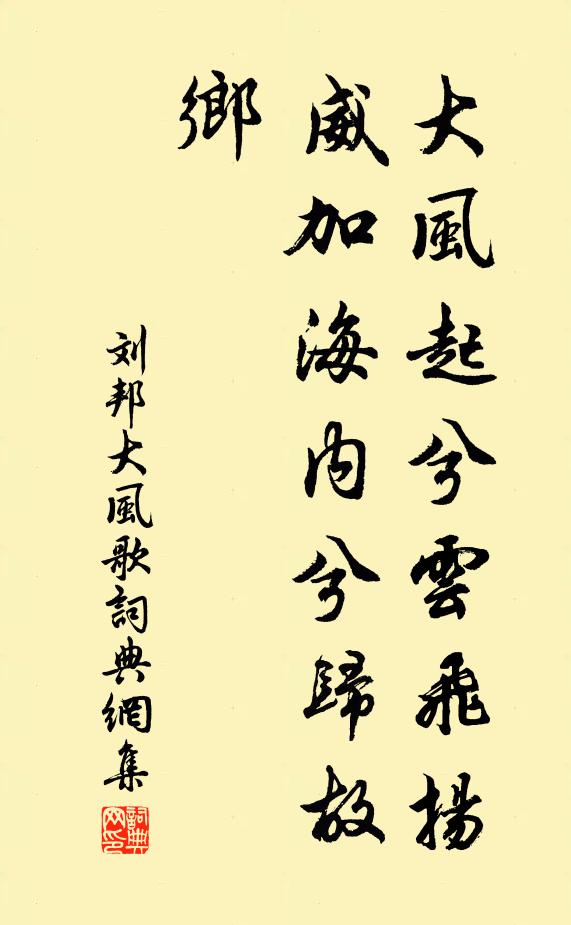 大風起兮雲飛揚
威加海内兮歸故
鄉
刘邦大風歌詞典網集
詞典
网印